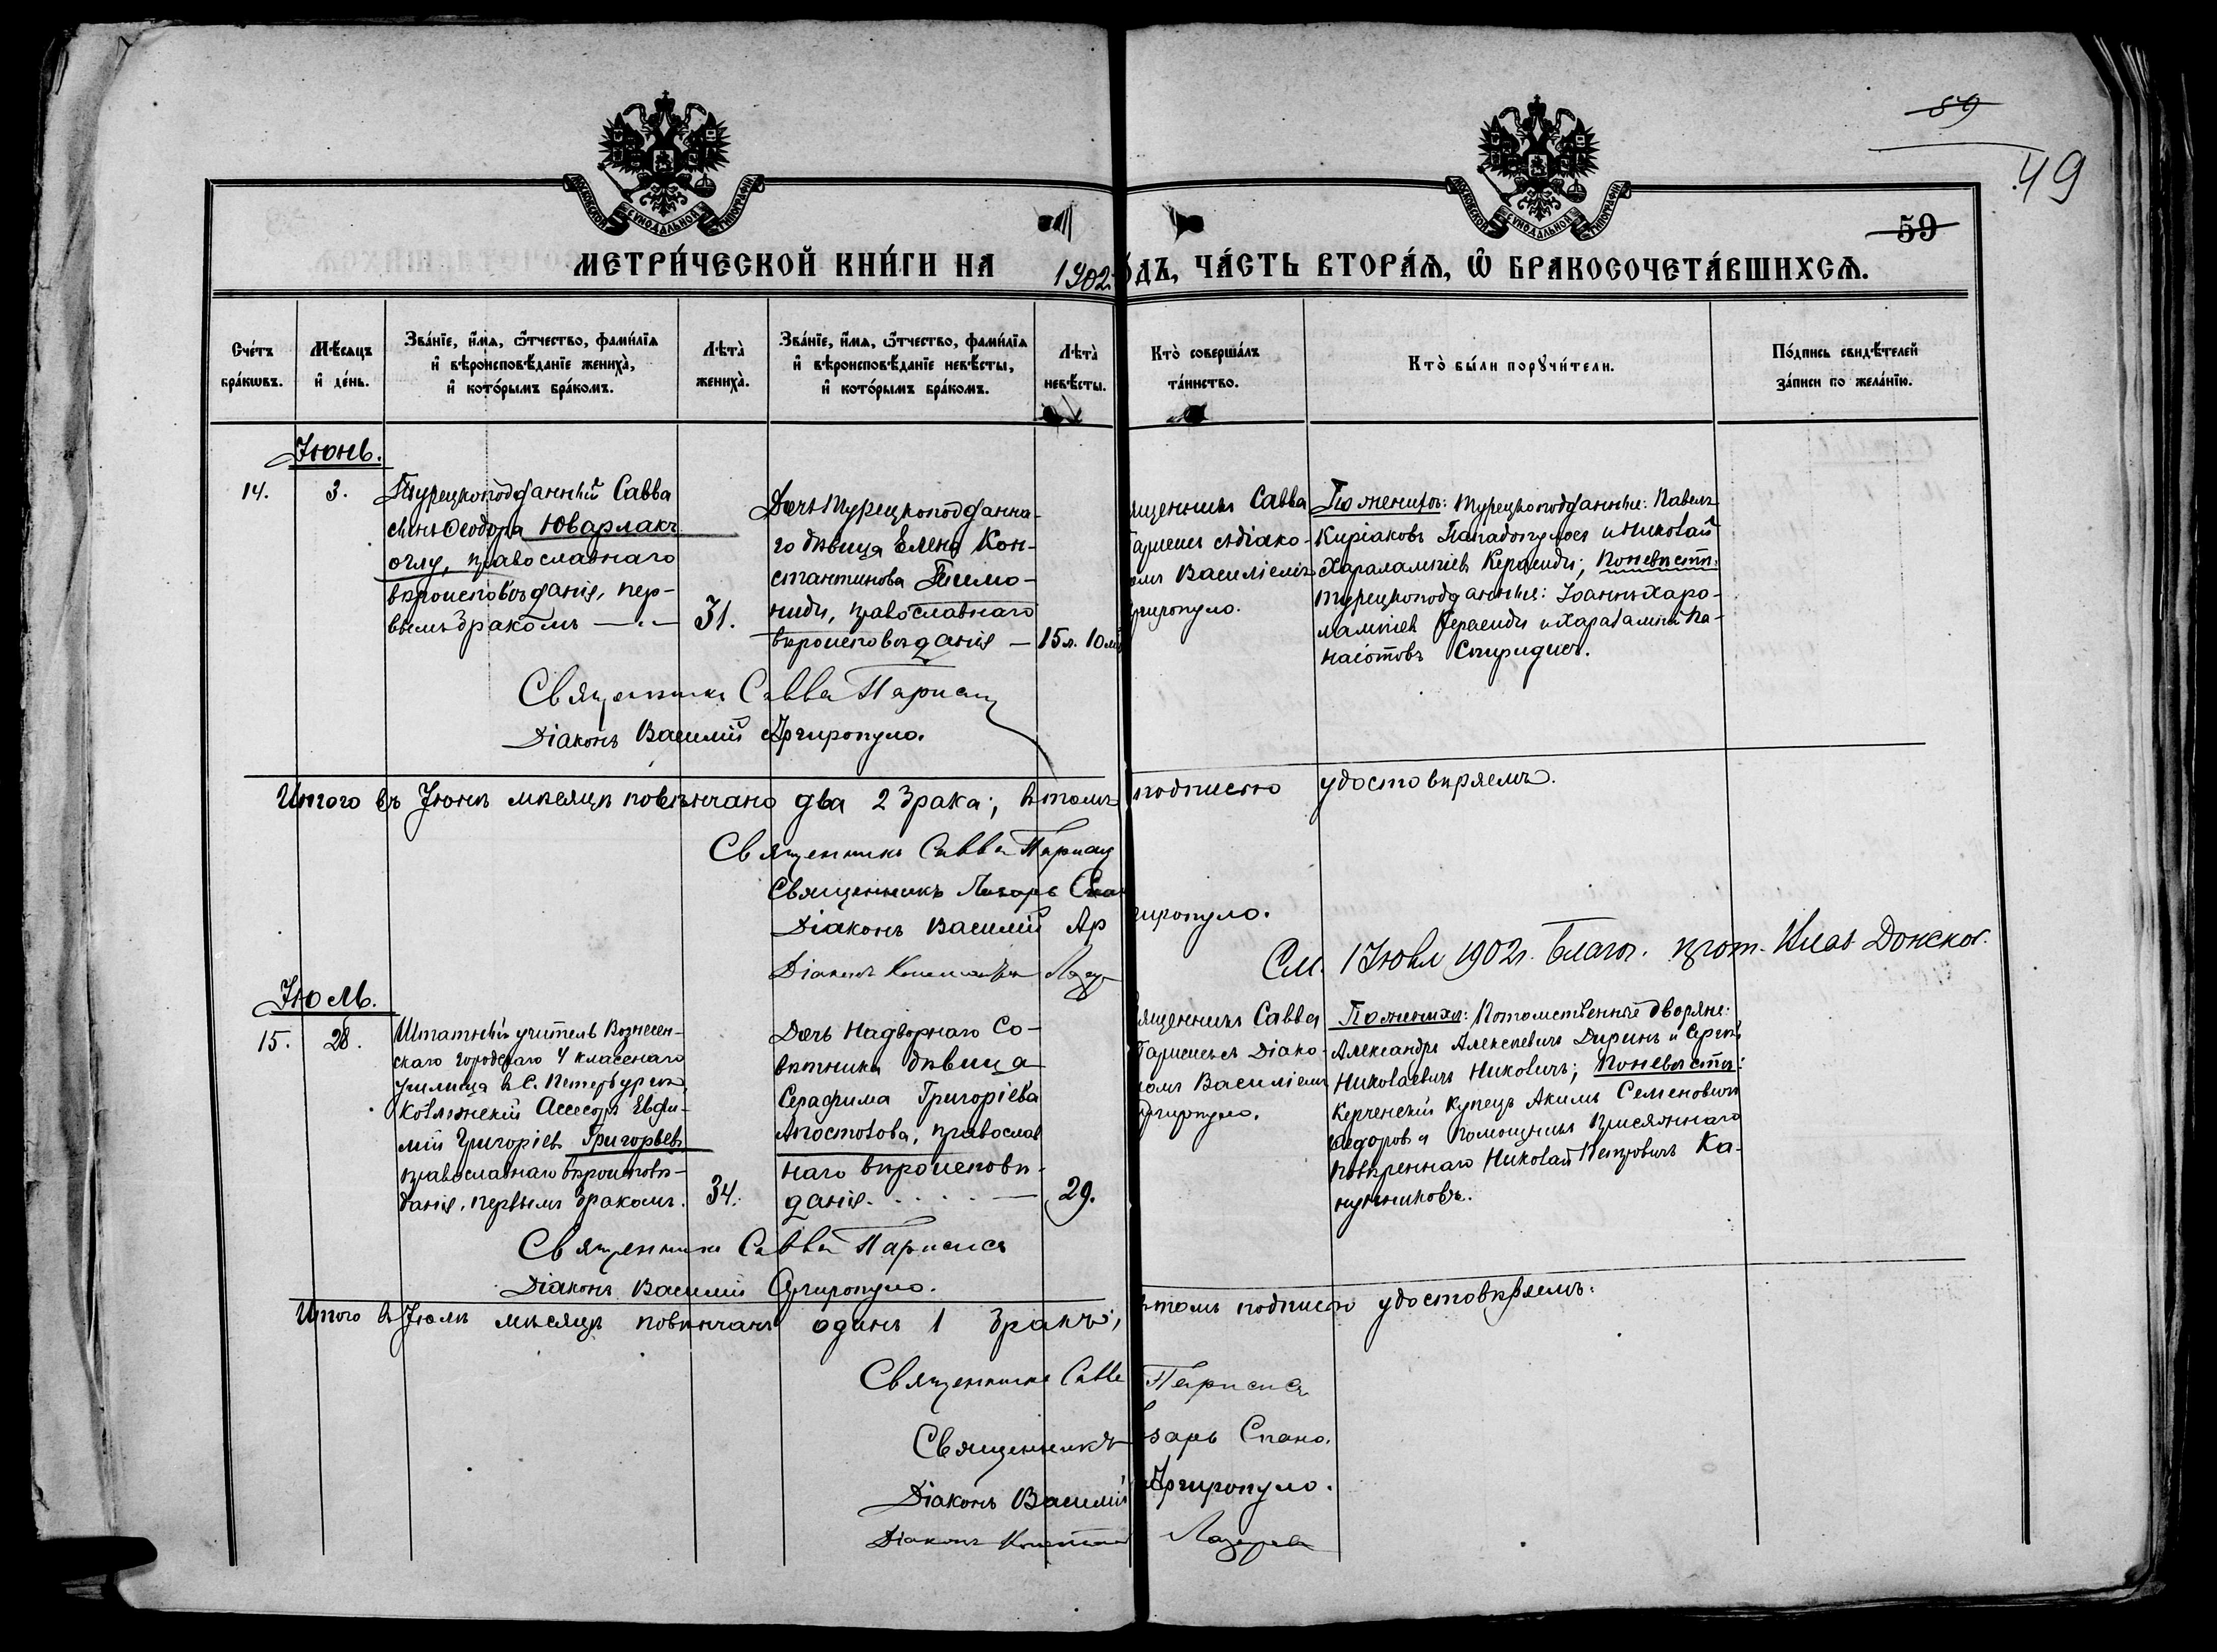 59
49
МОСКОВСКОЙ СѴНОДАЛЬНОЙ ТИПОГРАФІИ
МОСКОВСКОЙ СѴНОДАЛЬНОЙ ТИПОГРАФІИ
59
МЕТРИ́ЧЕСКОЙ КНИ́ГИ НА 1902 О́ДЪ, ЧА́СТЬ ВТОРА́Ѧ, Ѽ БРАКОСОЧЕТА́ВШИХСѦ.
Сче́тъ бра́кѡвъ.
Мѣ́сяцъ и҆ де́нь.
Зва́нїе, и҆́мѧ, ѻ҆́тчество, фами́лїѧ
и҆ вѣроисповѣ́данїе жениха̀,
и҆ кото́рымъ бра́комъ.
Лѣта̀ жениха̀.
Зва́нїе, и҆́мѧ, ѻ҆́тчество, фами́лїѧ
и҆ вѣроисповѣ́данїе невѣ́сты,
и҆ кото́рымъ бра́комъ.
Лѣта̀ невѣ́сты.
Кто̀ соверша́лъ та́инство.
Кто̀ бы́ли порꙋчи́тели.
По́дпись свидѣ́телей за́писи по жела́нїю.
Іюнь.
14.
3.
Турецкоподданный Савва
сынъ Ѳеодора Юварлакъ
оглу, православнаго
вѣроисповѣданія, пер-
вымъ бракомъ
31.
Дочь турецкоподданна-
го дѣвица Елена Кон-
стантинова
ниди, православнаго
вѣроисповѣданія
15 л. 10 м.
ященникъ Савва
Парисисъ съ діако-
омъ Василіемъ
ргиропуло.
По женихѣ: турецкоподданные: Павелъ
Киріаковъ Пападопулосъ и Николай
Харалампіевъ Керасиди; по невѣстѣ:
турецкоподданные: Іоаннъ Хара-
лампіевъ Керасиди и Харалампій Па-
наіотовъ Спиридисъ.
Священникъ Савва Парисисъ
Діаконъ Василій Аргиропуло.
Итого въ Іюнѣ мѣсяцѣ повѣнчано два 2 брака; въ томъ подписью удостовѣряемъ.
Священникъ Савва Парисисъ
Священникъ Лазарь Спа
Діаконъ Василій Ар гиропуло.
Діаконъ Константинъ Лазар
См. 1 Іюля 1902 г. Благоч. прот. Донской.
Іюль.
15.
28.
Штатный учитель Вознесен-
скаго городскаго 4 класснаго
училища въ С. Петербургѣ,
Коллежскій Ассесоръ Евфи-
мій Григоріевъ Григорьевъ
православнаго вѣроисповѣ-
данія, первымъ бракомъ.
34.
Дочь Надворнаго Со-
вѣтника дѣвица
Серафима Григоріева
Апостолова, православ
наго вѣроисповѣ-
данія.
29.
ященникъ Савва
Парисисъ съ Діако-
номъ Василіемъ
Аргиропуло.
По женихѣ: Потомственные дворяне:
Александръ Алексѣевичъ Диринъ и Сергѣй
Николаевичъ Николичъ; по невѣстѣ:
Керченскій купецъ Акимъ Семеновичъ
Ѳедоровъ и помощникъ Присяжнаго
повѣреннаго Николай Петровичъ Ка-
нунниковъ.
Священникъ Савва Парисисъ
Діаконъ Василій Аргиропуло.
Итого въ Іюлѣ мѣсяцѣ повѣнчанъ одинъ 1 бракъ; въ томъ подписью удостовѣряемъ:
Священникъ Савва Парисисъ
Священникъ зарь Спано.
Діаконъ Василій Аргиропуло.
Діаконъ Константинъ Лазарев